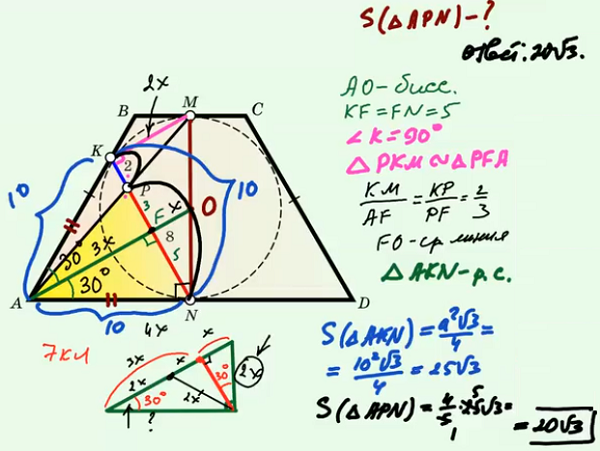 S(△APN)-?
Ответ: 20√3.
AO-бисс.
KF=FN=5
∠K=90°
△PKM∾△PFA
KM/AF = KP/PF = 2/3
FO-ср линия
△AKN-р.с.
S(△AKN)=a²√3/4=
=10²√3/4=25√3
S(△APN)=4/5·25√3= 5 1
=20√3
2x
B M C
K
2
10
P
10
3 x O
F
30° 3x 8
30° 5
A N D
10
4x x
7кл
3x x
2x 30° 2x
30° 2x
?